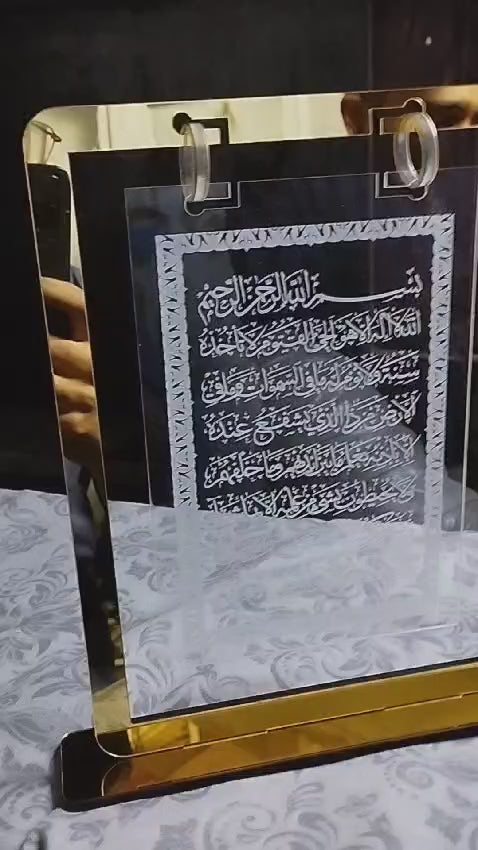 بسم الله الرحمن الرحيم
الله لا إله إلا هو الحي القيوم لا تأخذه
سنة ولا نوم له ما في السموات وما في
الأرض من ذا الذي يشفع عنده
إلا بإذنه يعلم ما بين أيديهم وما خلفهم
ولا يحيطون بشيء من علمه إلا بما شاء